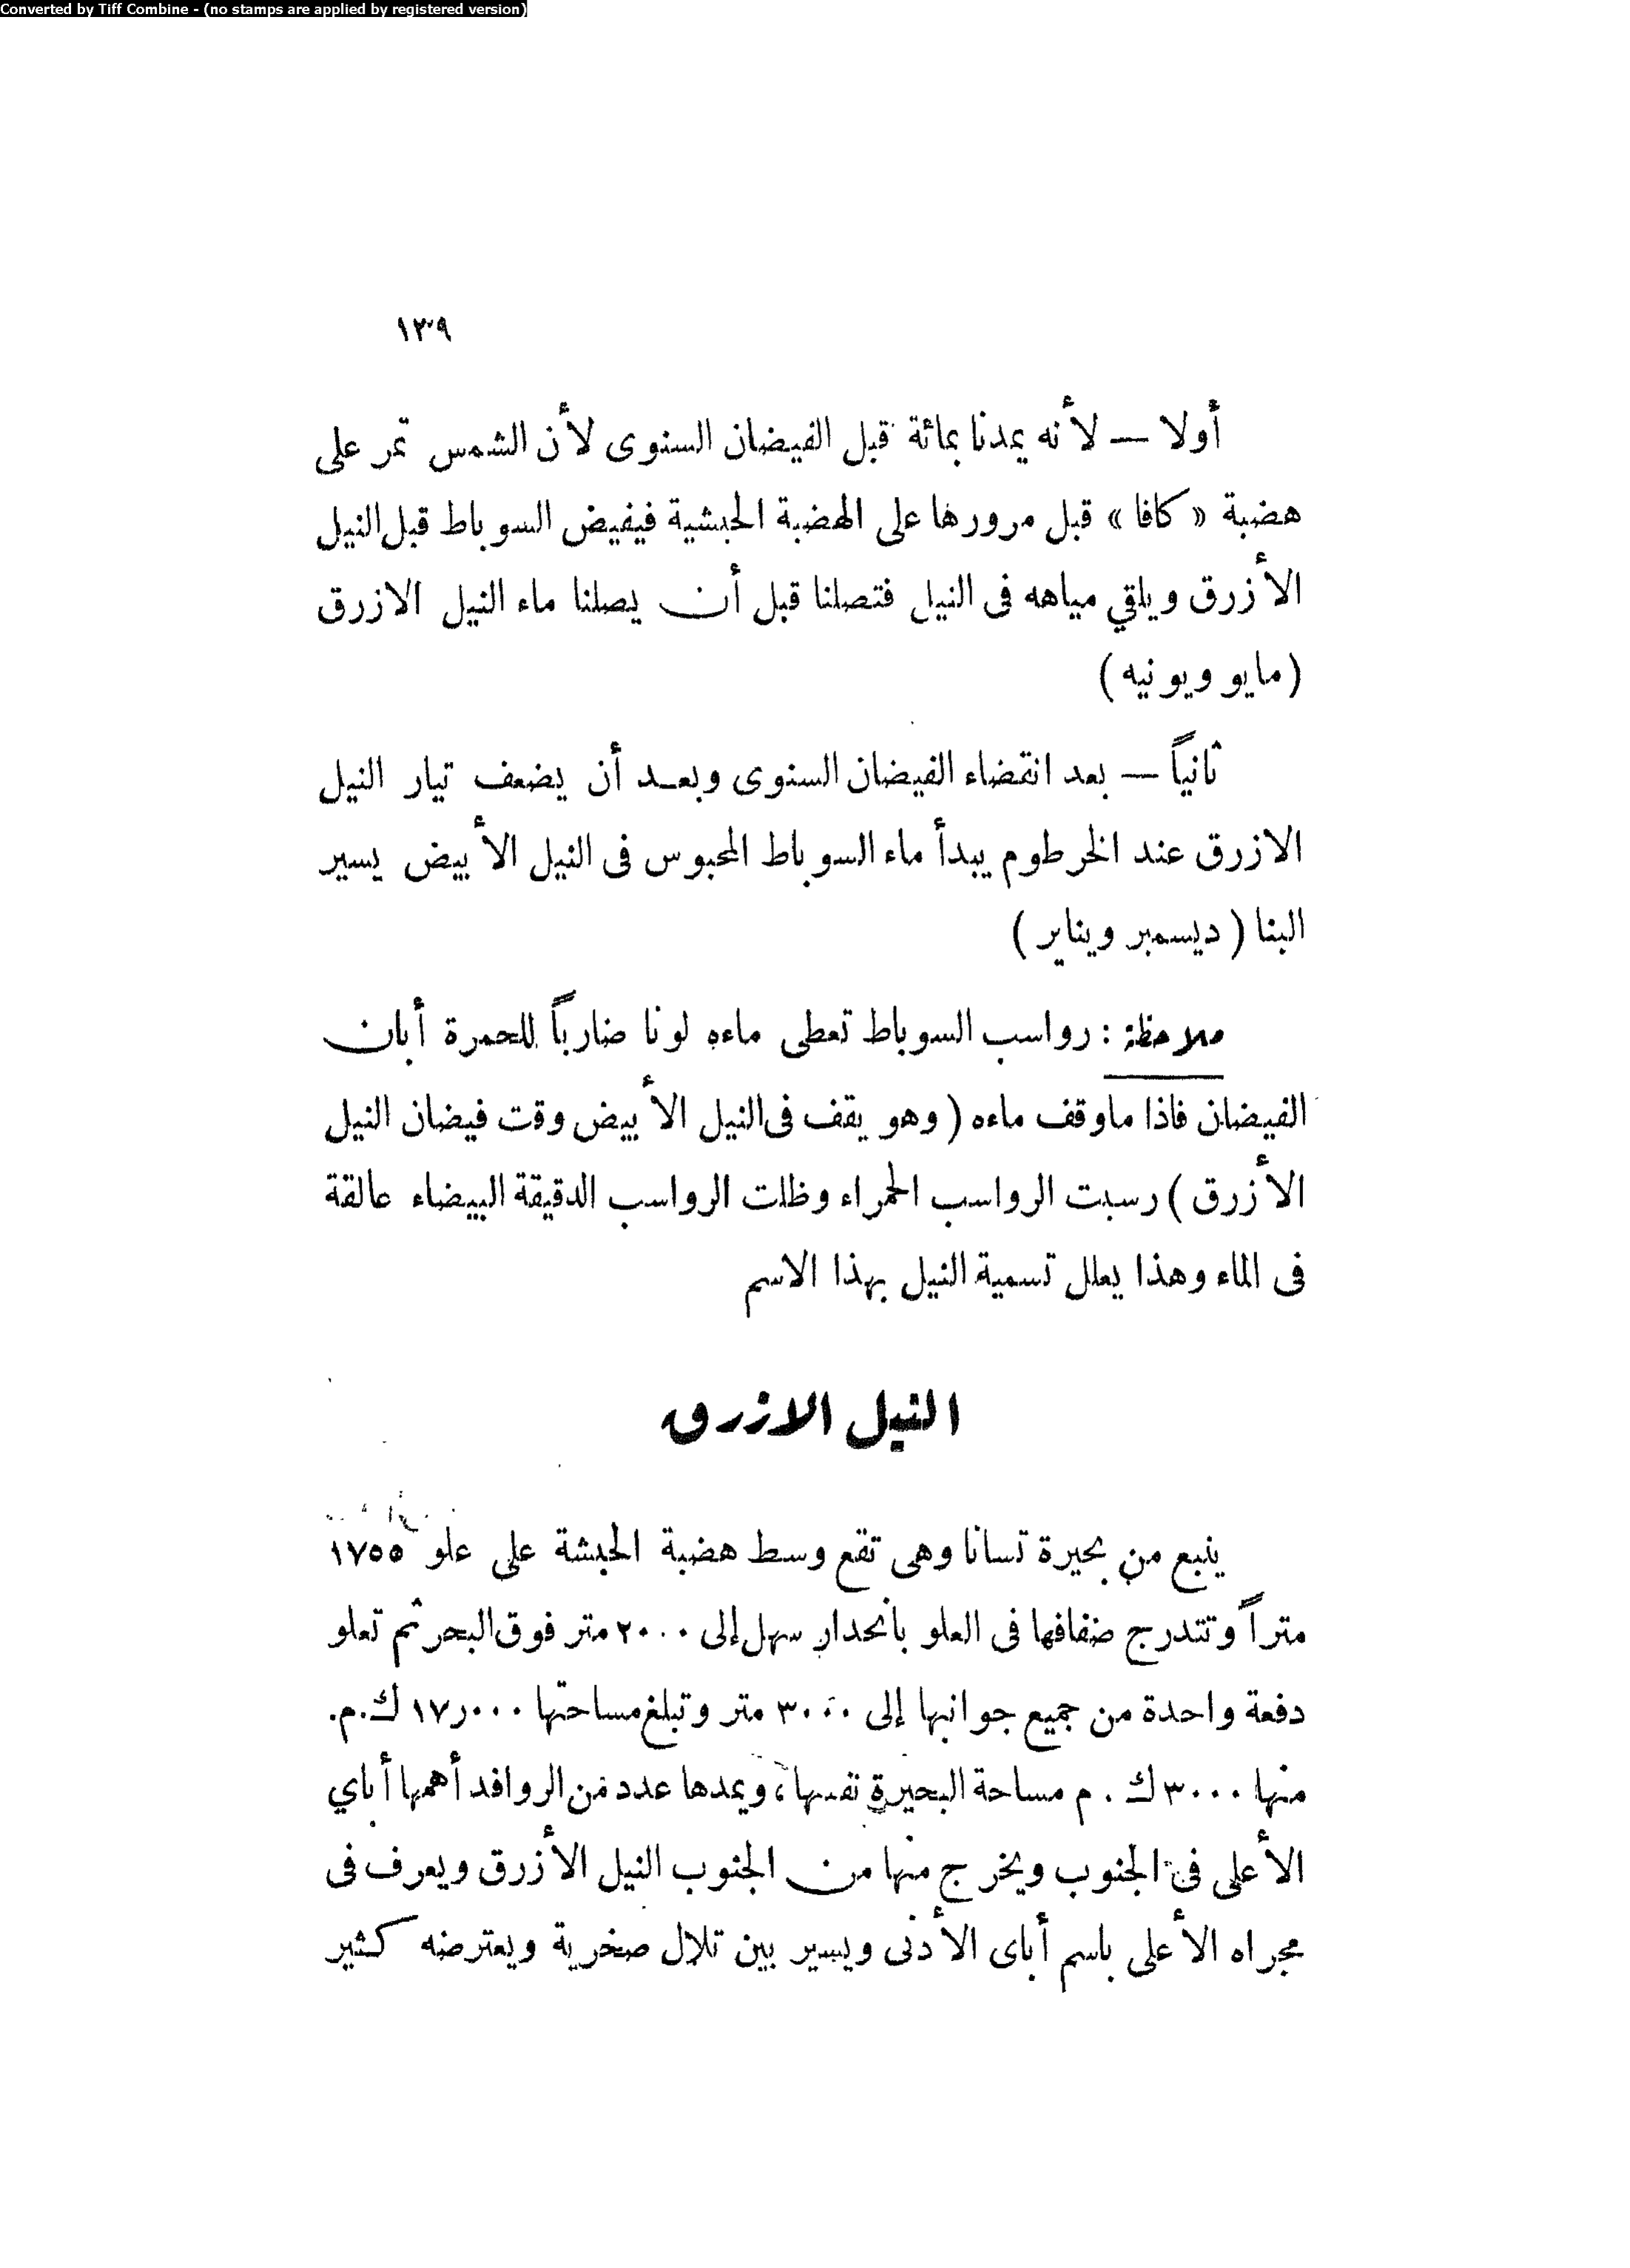 Converted by Tiff Combine - (no stamps are applied by registered version)
١٣٩
أولا — لأنه يمدنا بمائة قبل الفيضان السنوى لأن الشمس تمر على
هضبة «كافا» قبل مرورها على الهضبة الحبشية فيفيض السوباط قبل النيل
الأزرق ويلقي مياهه فى النيل فتصلنا قبل أن يصلنا ماء النيل الازرق
(مايو ويونيه)
ثانياً — بعد انقضاء الفيضان السنوى وبعد أن يضعف تيار النيل
الازرق عند الخرطوم يبدأ ماء السوباط المحبوس فى النيل الأبيض يسير
البنا (ديسمبر ويناير)
ملاحظة: رواسب السوباط تعطى ماءه لونا ضارباً للحمرة أبان
الفيضان فاذا ماوقف ماءه (وهو يقف فى النيل الأبيض وقت فيضان النيل
الأزرق) رسبت الرواسب الحمراء وظلت الرواسب الدقيقة البيضاء عالقة
فى الماء وهذا يعلل تسمية النيل بهذا الاسم
النيل الازرق
ينبع من بحيرة تسانا وهى تقع وسط هضبة الحبشة على علو ١٧٥٥
متراً وتتدرج ضفافها فى العلو بانحدار سهل إلى ٢٠٠٠ متر فوق البحر ثم تعلو
دفعة واحدة من جميع جوانبها إلى ٣٠٠٠ متر وتبلغ مساحتها ١٧ر٠٠٠ ك.م.
منها ٣٠٠٠ ك . م مساحة البحيرة نفسها، ويمدها عدد من الروافد أهمها أباي
الأعلى فى الجنوب ويخرج منها من الجنوب النيل الأزرق ويعرف فى
مجراه الأعلى باسم أباى الأدنى ويسير بين تلال صخرية ويعترضه كثير